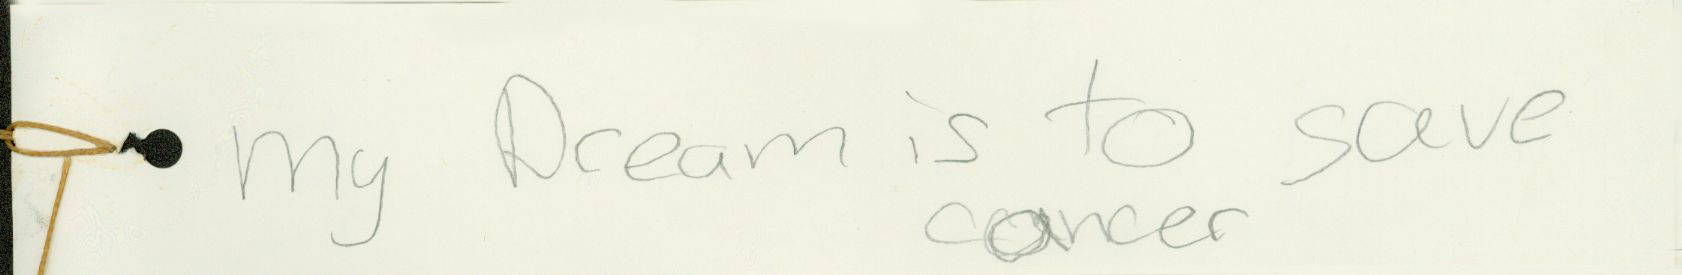 my Dream is to save
cancer